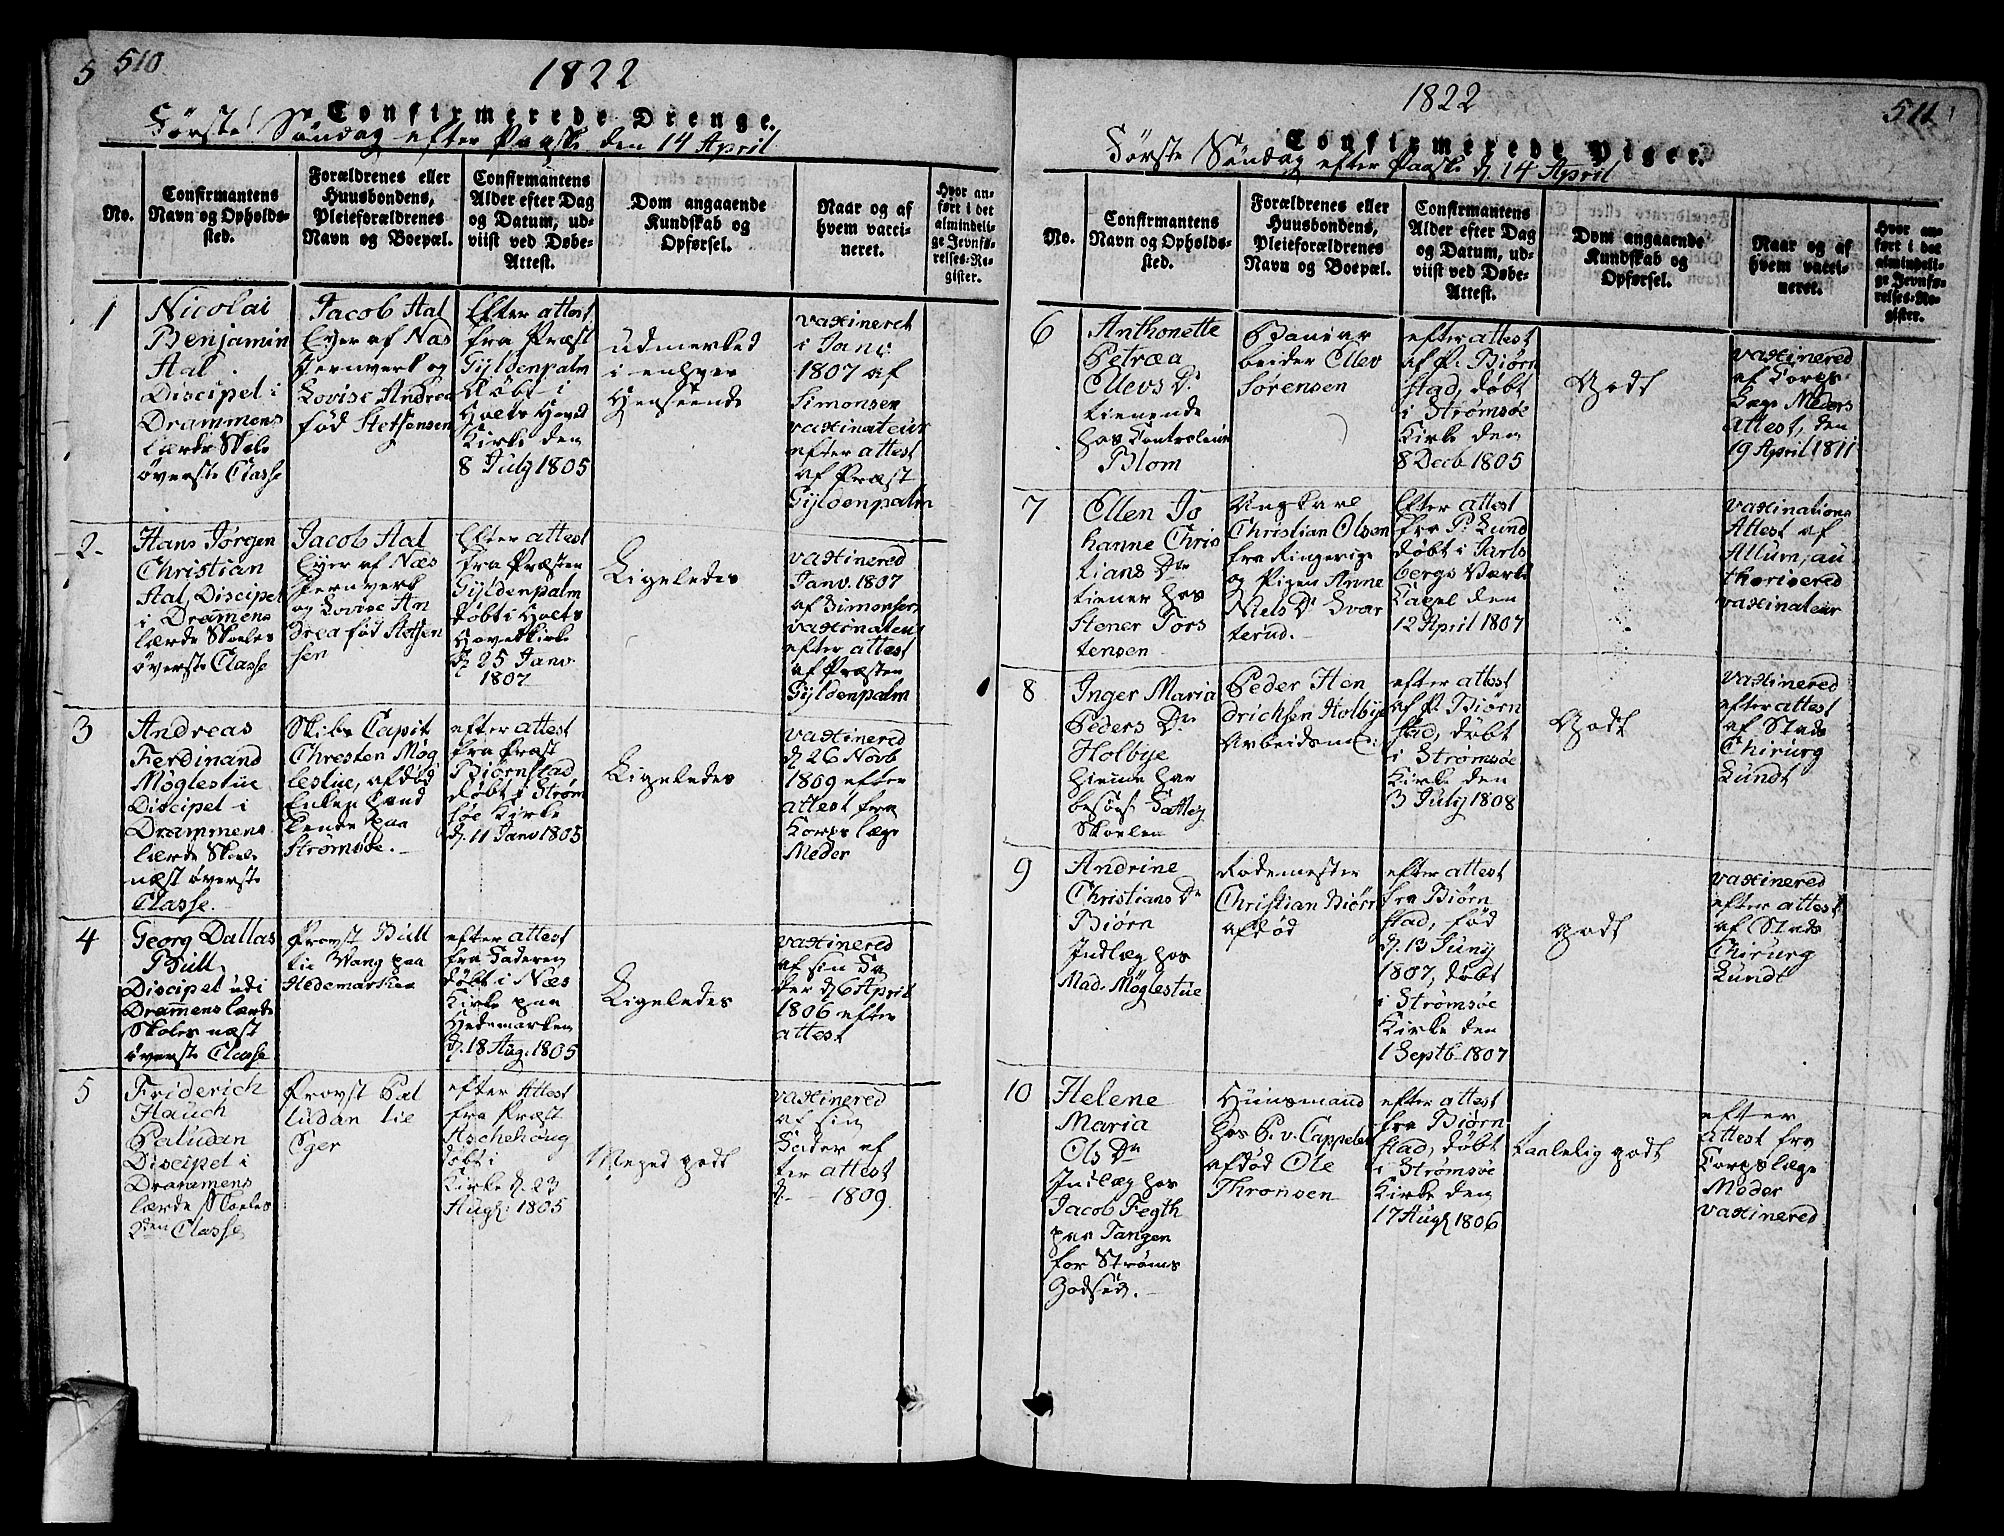 5 510
1822
Confirmerede Drenge.
Første Søndag efter Paaske den 14 April
No.
Confirmantens
Navn og Opholds-
sted.
Forældrenes eller
Huusbondens,
Pleieforældrenes
Navn og Boepæl.
Confirmantens
Alder efter Dag
og Datum, ud-
viist ved Døbe-
Attest.
Dom angaaende
Kundskab og
Opførsel.
Naar og af
hvem vacci-
neret.
Hvor an-
ført i det
almindeli-
ge Jevnfø-
relses-Re-
gister.
1
Nicolai
Benjamin
Aal
Discipel i
Drammens
lærde Skole
øverste Classe
Jacob Aal
Eyer af Næs
Jernverk og
Lovise Andrea
fød Stephansen
Efter attest
fra Præst
Gyldenpalm
døbt i
Holts Hoved
Kirke den
8 July 1805
udmerked
i enhver
Henseende
vaxineret
i Janv
1807 af
Simonsen
vaxinateur
efter attest
af Præst
Gyldenpalm
2
Hans Jørgen
Christian
Aal, Discipel
i Dramens
lærde Skoles
øverste Classe
Jacob Aal
Eyer af Næs
Jernverk
og Lovise An
drea fød
sen
Efter attest
fra Præsten
Gyldenpalm
døbt i Holts
Hovetkirke
d. 25 Janv.
1807
Ligeledes
vaxinered
Janv. 1807
af Simonsen
vaxinateur
efter attest
af Præsten
Gyldenpalm
3
Andreas
Ferdinand
Møglestüe
Discipel i
Drammens
lærde Skole
næst øverste
Classe.
Skibs Capit
Christen Møg
lestüe, afdød
Enken
paa
Strømsøe.
efter attest
fra Præst
Biørnstad
døbt i Strøm
søe Kirke
d. 11 Janv 1805
Ligeledes
vaxinered
d 26 Novb
1809 efter
attest fra
Korpslæge
Meder
4
Georg Dallas
Büll
Discipel udi
Dramens lærde
Skoles næst
øverste Classe
Provst Büll
til Wang paa
Hedemarken
efter attest
fra Faderen
døbt i Næs
Kirke paa
Hedemarken
d. 18 Aug. 1805
Ligeledes
vaxinered
af sin Fa
der d 6 April
1806 efter
attest
5
Friderich
Hauch
Paludan
Discipel i
Drammens
lærde Skoles
2den Classe
Provst Pal
ludan til
Eger
efter Attest
fra Præst
Aschehoug
døbt i
Kirke d. 23
Aug. 1805
Meget godt
vaxinered
af sin
Fader ef
ter attest
d. - 1809
1822
511
Confirmerede Piger.
Første Søndag efter Paaske d. 14 April
No.
Confirmantens
Navn og Opholds-
sted.
Forældrenes eller
Huusbondens,
Pleieforældrenes
Navn og Boepæl.
Confirmantens
Alder efter Dag
og Datum, ud-
viist ved Døbe-
Attest.
Dom angaaende
Kundskab og
Opførsel.
Naar og af
hvem vacci-
neret.
Hvor an-
ført i det
almindeli-
ge Jevnfø-
relses-Re-
gister.
6
Anthonette
Petræa
Ellevs Dr
tienende
hos Controleur
Blom
beider Ellev
Sørensen
efter attest
af P. Biørn
stad, døbt
i Strømsøe
Kirke den
8 Decb 1805
Godt
vaxinered
af Corps
Læge Meders
Attest, den
19 April 1811
7
Ellen Jo
hanne Chris
tians Dr
tiener hos
Stener Tors
tensen
Ungkarl
Christian Olsen
fra Ringerige
og Pigen Anne
Niels Dr Svar
terud.
Efter attest
fra P. Lund
døbt i Jarls
bergs Værks
Capel den
12 April 1807
vaxinations
Attest af
Allum, au
thorisered
vaxinateur
8
Inger Maria
Peders Dr
Holbye
hiemme har
besøgt Fattig
Skoelen
Peder Hen
drichsen Holbye
Arbeidsm.
efter attest
af P. Biørn
stad, døbt
i Strømsøe
Kirke den
3 July 1808
Godt
vaxinered
efter attest
af Stads
Chirurg
Lundt
9
Andrine
Christians Dr
Biørn
Indlæg hos
Mad. Møglestüe
Rodemester
Christian Biørn
afdød
efter attest
fra Biørn
stad, fød
d. 13 Juny
1807, døbt
i Strømsøe
Kirke den
1 Septb 1807
godt
vaxinered
efter attest
af Stads
Chirurg
Lundt
10
Helene
Maria
Ols Dr
Indlæg hos
Jacob Fegth
paa Tangen
for Strøms
Godset.
Huusmand
hos P. v. Cappelen
afdød Ole
Thronsen
efter attest
fra Biørn
stad, døbt
i Strømsøe
Kirke den
17 Aug 1806
taalelig godt
efter
attest fra
Corpslæge
Meder
vaxinered